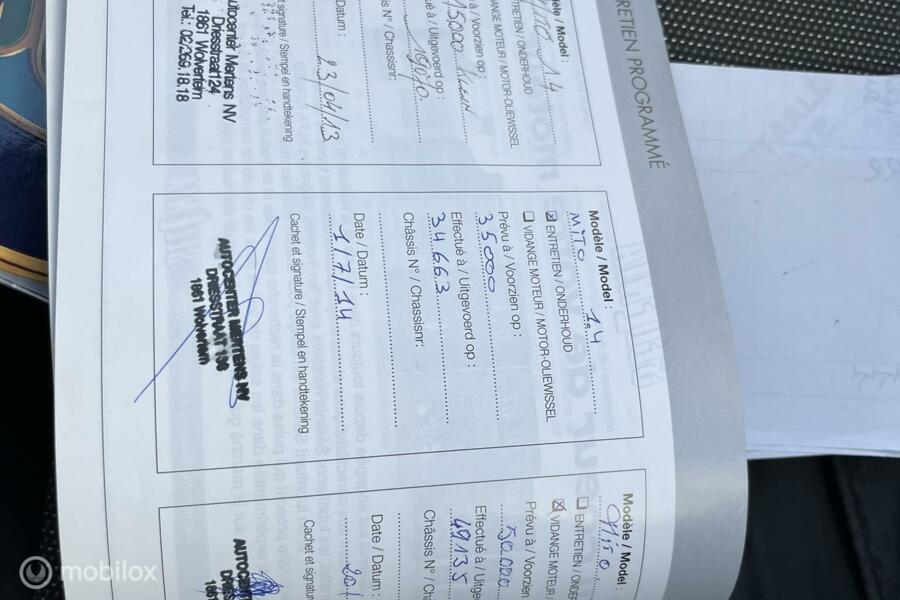 RETIEN PROGRAMMÉ
Modèle / Model :
1.4
ENTRETIEN / ONDERHOUD
VIDANGE MOTEUR / MOTOR-OLIEWISSEL
Prévu à / Voorzien op :
15000
Effectué à / Uitgevoerd op :
Châssis N° / Chassisnr:
Date / Datum :
23/04/13
Cachet et signature / Stempel en handtekening
Autocenter Mertens NV
Driesstraat 124
1861 Wolvertem
Tel.: 02/269.18.18
Modèle / Model :
MiTo 1.4
☒ ENTRETIEN / ONDERHOUD
☐ VIDANGE MOTEUR / MOTOR-OLIEWISSEL
Prévu à / Voorzien op :
35000
Effectué à / Uitgevoerd op :
34663
Châssis N° / Chassisnr:
Date / Datum :
1/7/14
Cachet et signature / Stempel en handtekening
AUTOCENTER MERTENS NV
DRIESSTRAAT 196
1861 Wolvertem
Modèle / Model
Mito
☐ ENTRETIEN / OND
☒ VIDANGE MOTEUR /
Prévu à / Voorzien
50.000
Effectué à / Uitge
49135
Châssis N° / Ch
Date / Datum :
20/
Cachet et signat
AUTOCE
DRIES
1861
mobilox